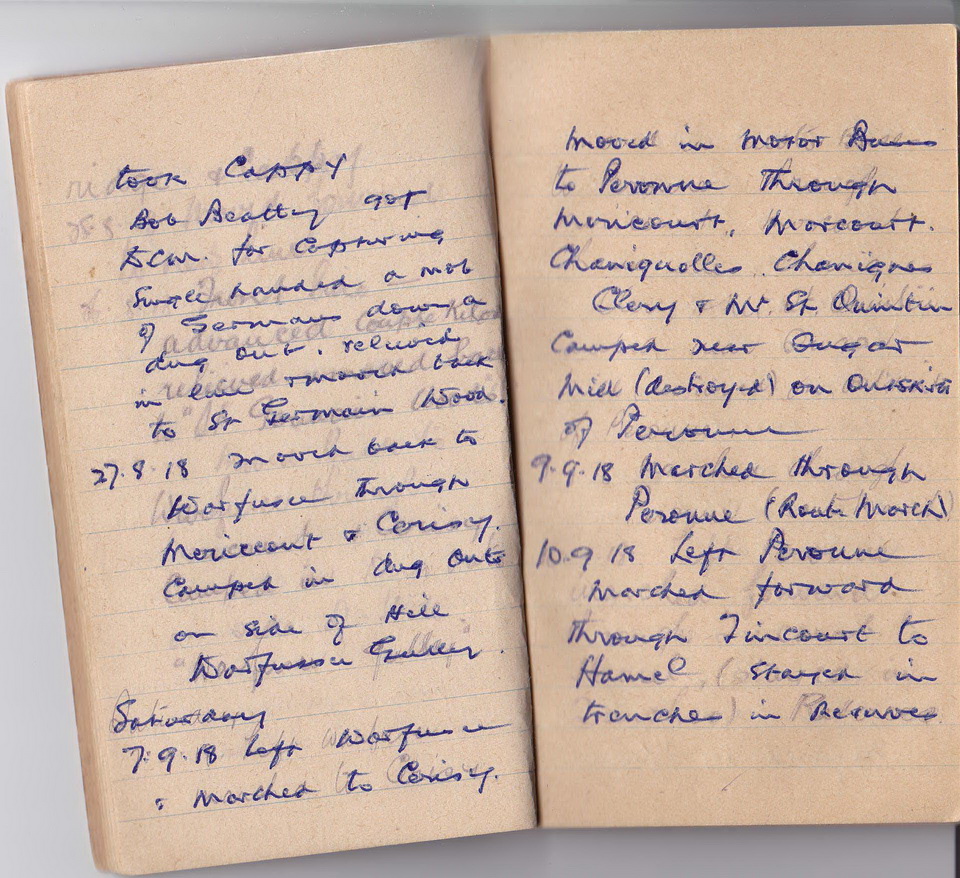 took Cappy
Bob Beatty got
D.C.M. for Capturing
Single handed a mob
of Germans down a
dug out. relieved
in line & march back
to St Germain Wood.
27.8.18 march back to
Warfusee through
Mericourt & Cerisy.
Camped in dug outs
on side of Hill
Warfusee Gulley.
Saturday
7.9.18 Left Warfusee
& Marched to Cerisy.
Moved in Motor Buses
to Peronne Through
Moricourt, Morcourt.
Chaniquolles, Chanignes
Clery & Mt. St Quintin
Camped near Sugar
Mill (destroyed) on Outskirts
of Peronne
9.9.18 Marched through
Peronne (Route March)
10.9 18 Left Peronne
Marched forward
through Tincourt to
Hamel (Stayed in
trenches) in Reserves